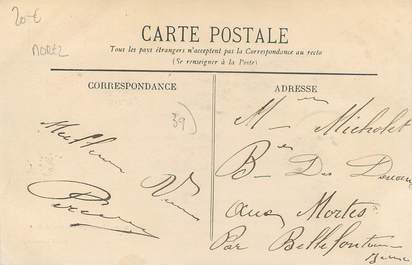 20 €
MOREZ
CARTE POSTALE
Tous les pays étrangers n'acceptent pas la Correspondance au recto
(Se renseigner à la Poste)
CORRESPONDANCE
ADRESSE
39
Meilleurs
M
Michelet
Des
aux Mortes
Par Bellefontaine
Jura